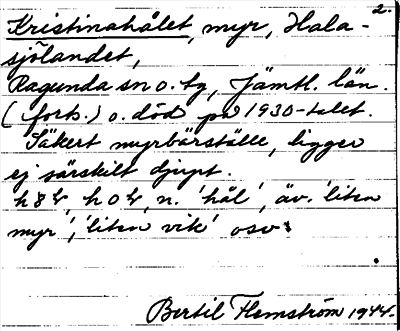 2.
Kristinahålet, myr, Hala-
sjölandet,
Ragunda sn o. tg, Jämtl. län.
(forts.) o. död på 1930-talet.
Säkert myrbärställe, ligger
ej särskilt djupt.
hål, n. 'hål', äv. 'liten
myr', 'liten vik' osv.
Bertil Flemström 1944.